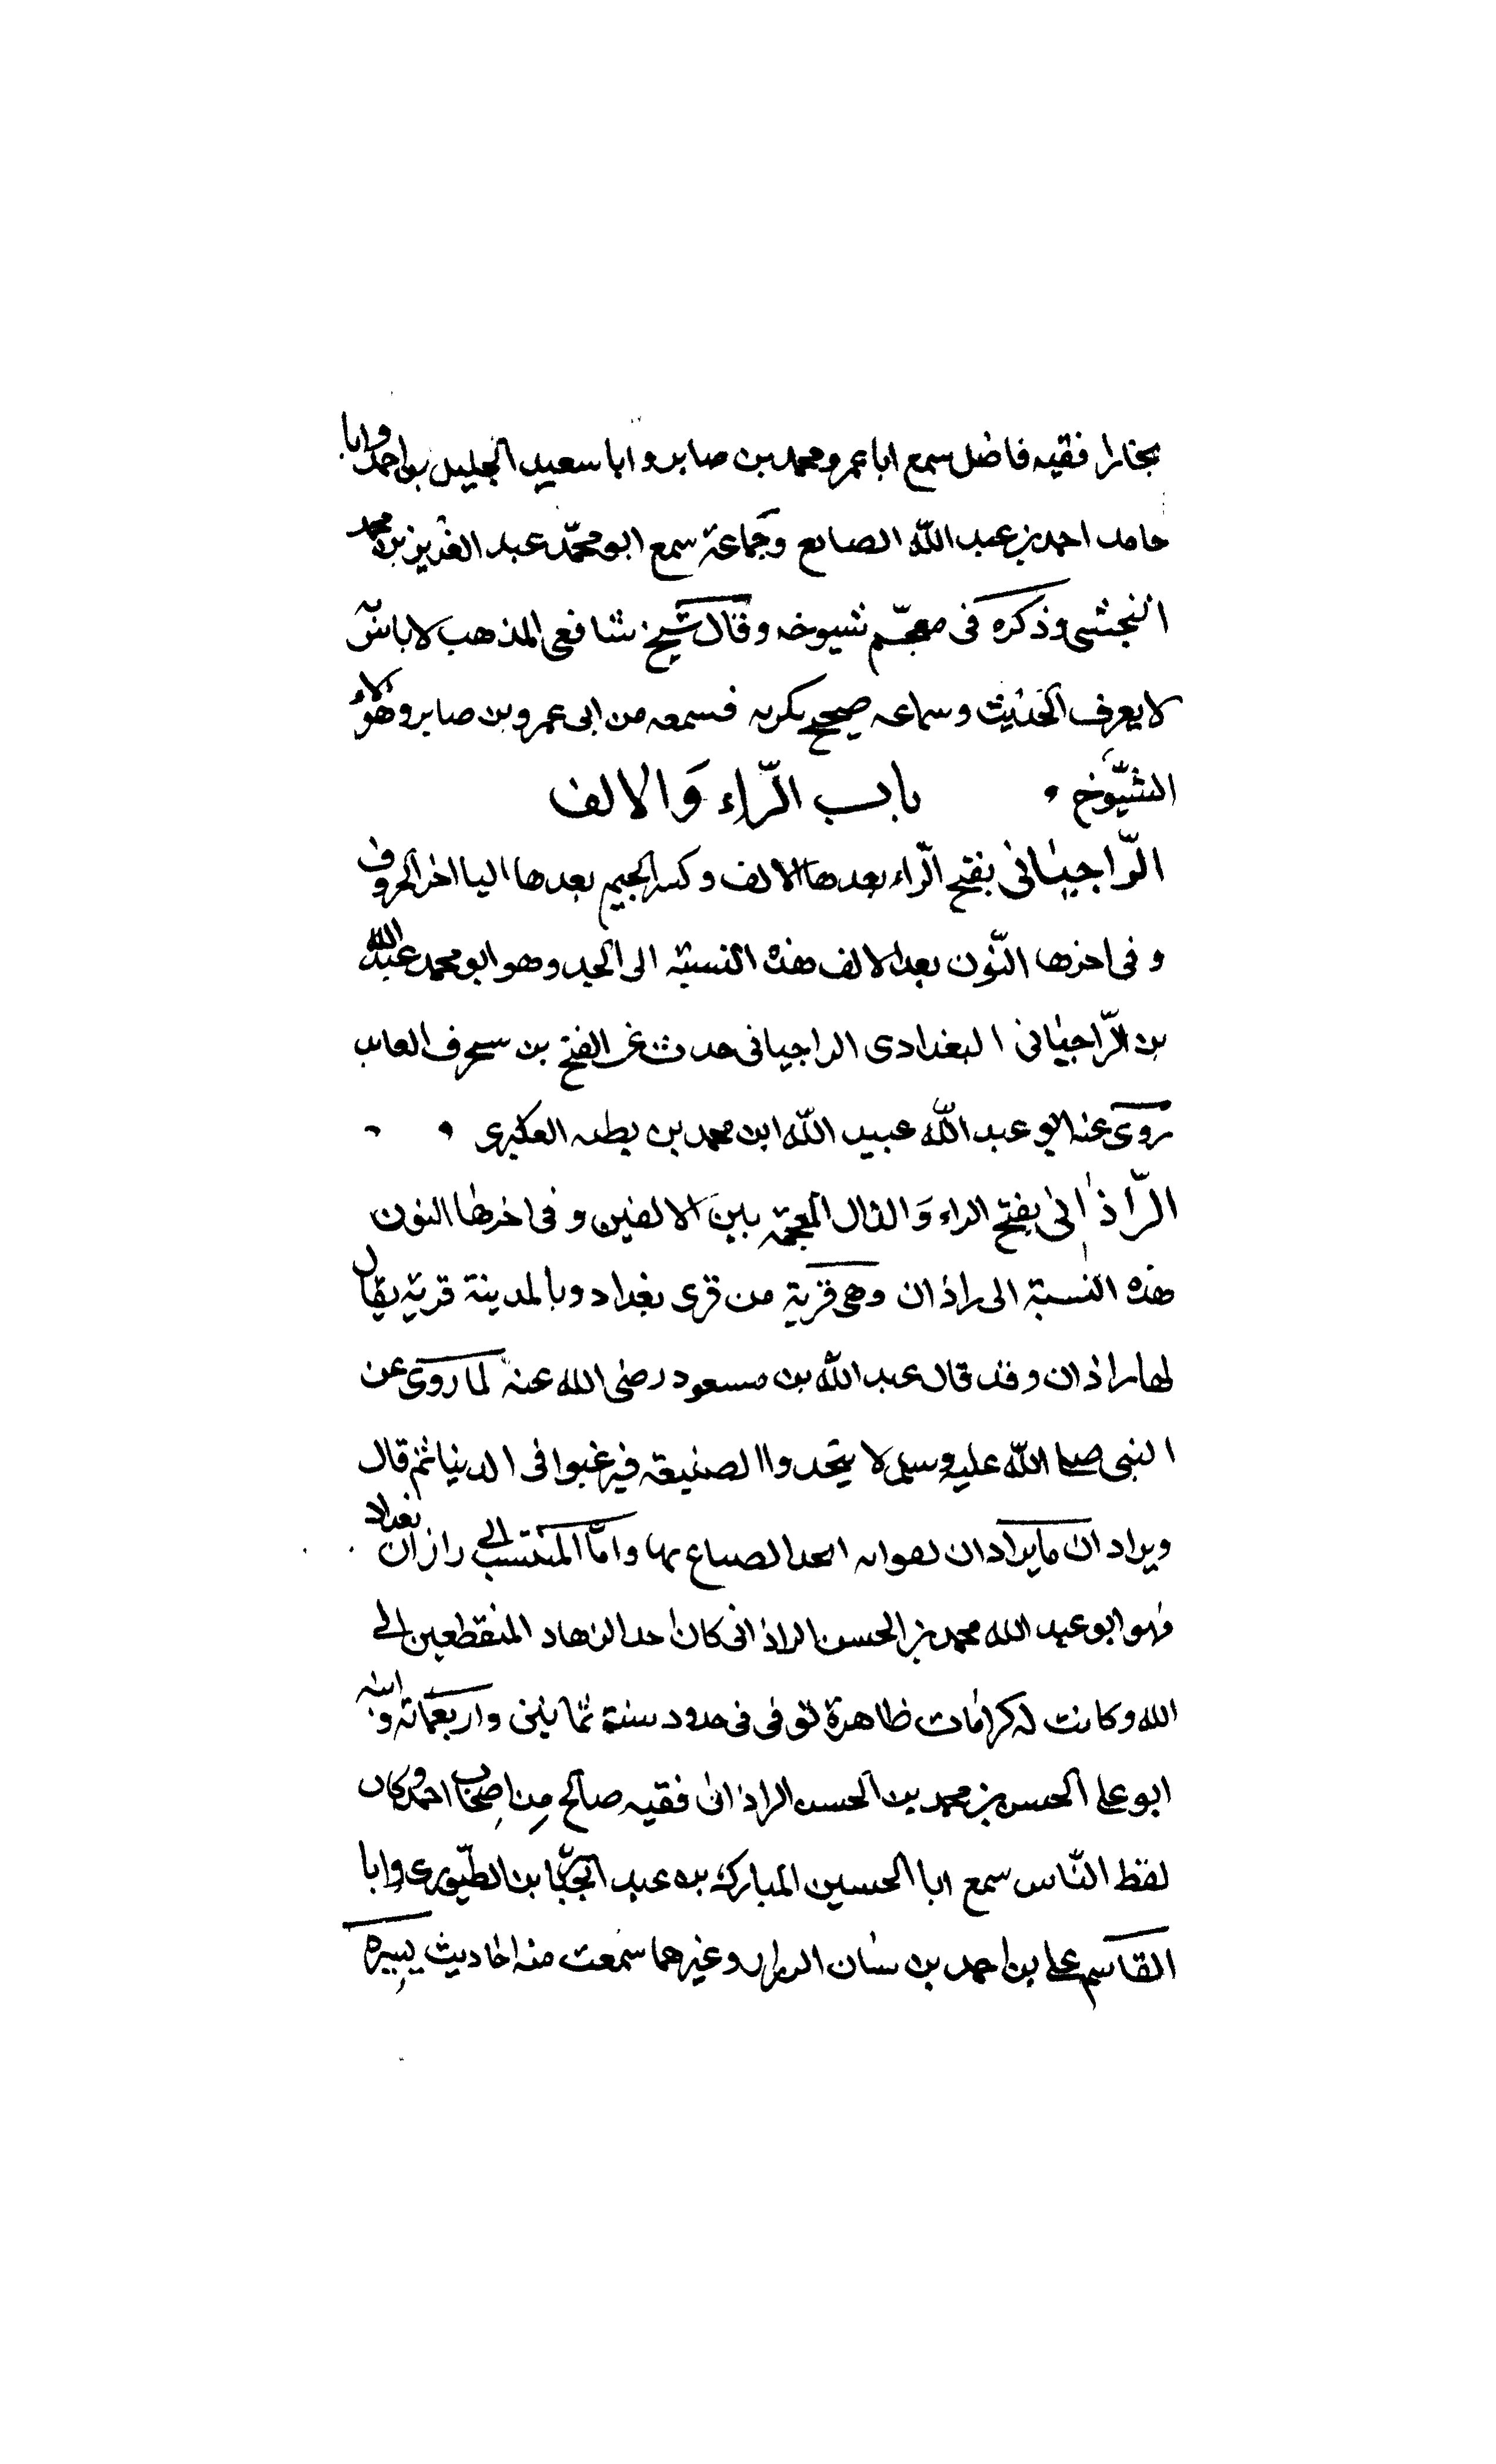 بخارا فقيه فاضل سمع ابا عمرو محمد بن صابر و ابا سعيد الجليل بن احمد وابا
حامد احمد بن عبد الله الصايع وجماعة سمع ابو محمّد عبد العزيز بن محمد
النخشى وذكره فى معجم شيوخه وقال شيخ شافعى المذهب لا باس به
لا يعرف الحديث وسماعه صحيح فسمعه من ابى عمرو بن صابر وهولاء
الشيّوخ ، باب الرّاء وَالالف
الرّاجيانى بفتح الرّاء بعدها الالف وكسر الجيم بعدها اليا اخر الحروف
و فى اخرها النّون بعد الالف هذه النسبة الى الجد وهو ابو محمد عبد الله
بن الرّاجيانى البغدادى الراجيانى حدث عن الفتح بن سحرف العابد
روى عنه ابو عبد الله عبيد الله ابن محمد بن بطه العكبرى ،
الرّاذانى بفتح الراء وَالذال المعجمة بين الالفين و فى اخرها النون
هذه النسبة الى راذان وهى قرية من قرى بغداد وبالمدينة قرية يقال
لها راذان وقد قال عبد الله بن مسعود رضى الله عنه لما روى عن
النبى صلى الله عليه وسلم لا يتخدوا الصنيعة فيرغبوا فى الدنيا ثم قال
وبرادان ما برادان واما المنتسب الى رازان بغداد
فهو ابو عبد الله محمد بن الحسن الراذانى كان احد الزهاد المنقطعين الى
الله وكانت له كرامات ظاهرة توفى فى حدود سنة ثمانين واربعمائة وابنه
ابو على الحسن بن محمد بن الحسن الراذانى فقيه صالح من اصحاب احمد وكان
لقظ النّاس سمع ابا الحسين المبارك بن عبد الجبّار ابن الطيّورى وابا
القاسم على بن احمد بن وغيرهما سمعت منه احاديث يسيره